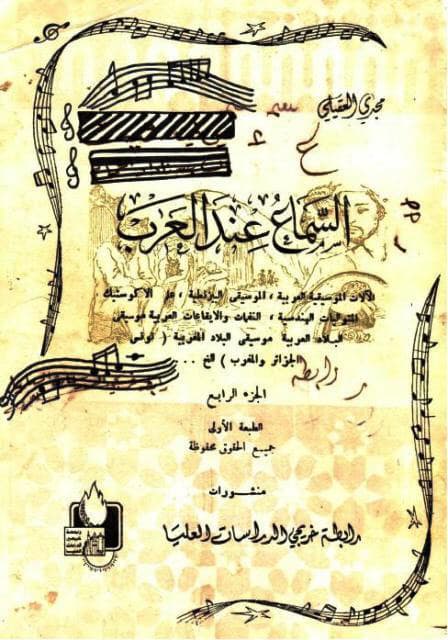 مجدي العقيلي
السماع عند العرب
الآلات الموسيقية العربية، الموسيقى البيزنطية، علم الاكوستيك
المتواليات الهندسية، النغمات والايقاعات العربية موسيقى
البلاد العربية موسيقى البلاد المغربية ( تونس
الجزائر والمغرب ) الخ ...
رابطة
الجزء الرابع
الطبعة الأولى
جميع الحقوق محفوظة
منشورات
رابطة خريجي الدراسات العليا